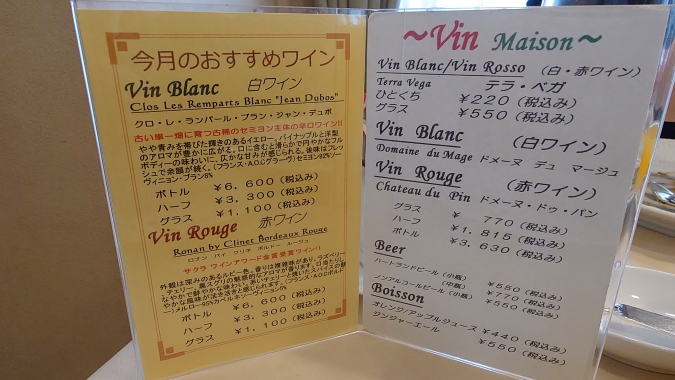 今月のおすすめワイン
Vin Blanc 白ワイン
Clos Les Remparts Blanc "Jean Dubos"
クロ・レ・ランパール・ブラン・ジャン・デュボ
古い単一畑に育つ古株のセミヨン主体の辛口ワイン!!
やや青みを帯びた輝きのあるイエロー。パイナップルと洋梨
のアロマが豊かに広がる。口に含むと滑らかで円やかなフル
ボディーの味わいに、仄かな甘みが感じられる。後味はフレッ
シュで余韻が続く。(フランス・A.O.Cグラーヴ)セミヨン92%ソー
ヴィニヨン・ブラン8%
ボトル ¥6,600(税込み)
ハーフ ¥3,300(税込み)
グラス ¥1,100(税込み)
Vin Rouge 赤ワイン
Ronan by Clinet Bordeaux Rouge
ロナン バイ クリネ ボルドー ルージュ
サクラ ワインアワード金賞受賞ワイン!!
ボトル ¥6,600(税込み)
ハーフ ¥3,300(税込み)
グラス ¥1,100(税込み)
~Vin Maison~
Vin Blanc/Vin Rosso (白・赤ワイン)
Terra Vega テラ・ベガ
ひとくち ¥220(税込み)
グラス ¥550(税込み)
Vin Blanc (白ワイン)
Domaine du Mage ドメーヌ デュ マージュ
Vin Rouge (赤ワイン)
Chateau du Pin ドメーヌ・ドゥ・パン
グラス ¥ 770(税込み)
ハーフ ¥1,815(税込み)
ボトル ¥3,630(税込み)
Beer
ハートランドビール(小瓶) ¥550(税込み)
(中瓶) ¥770(税込み)
ノンアルコールビール(小瓶) ¥550(税込み)
Boisson
オレンジ/アップルジュース ¥440(税込み)
ジンジャーエール ¥550(税込み)